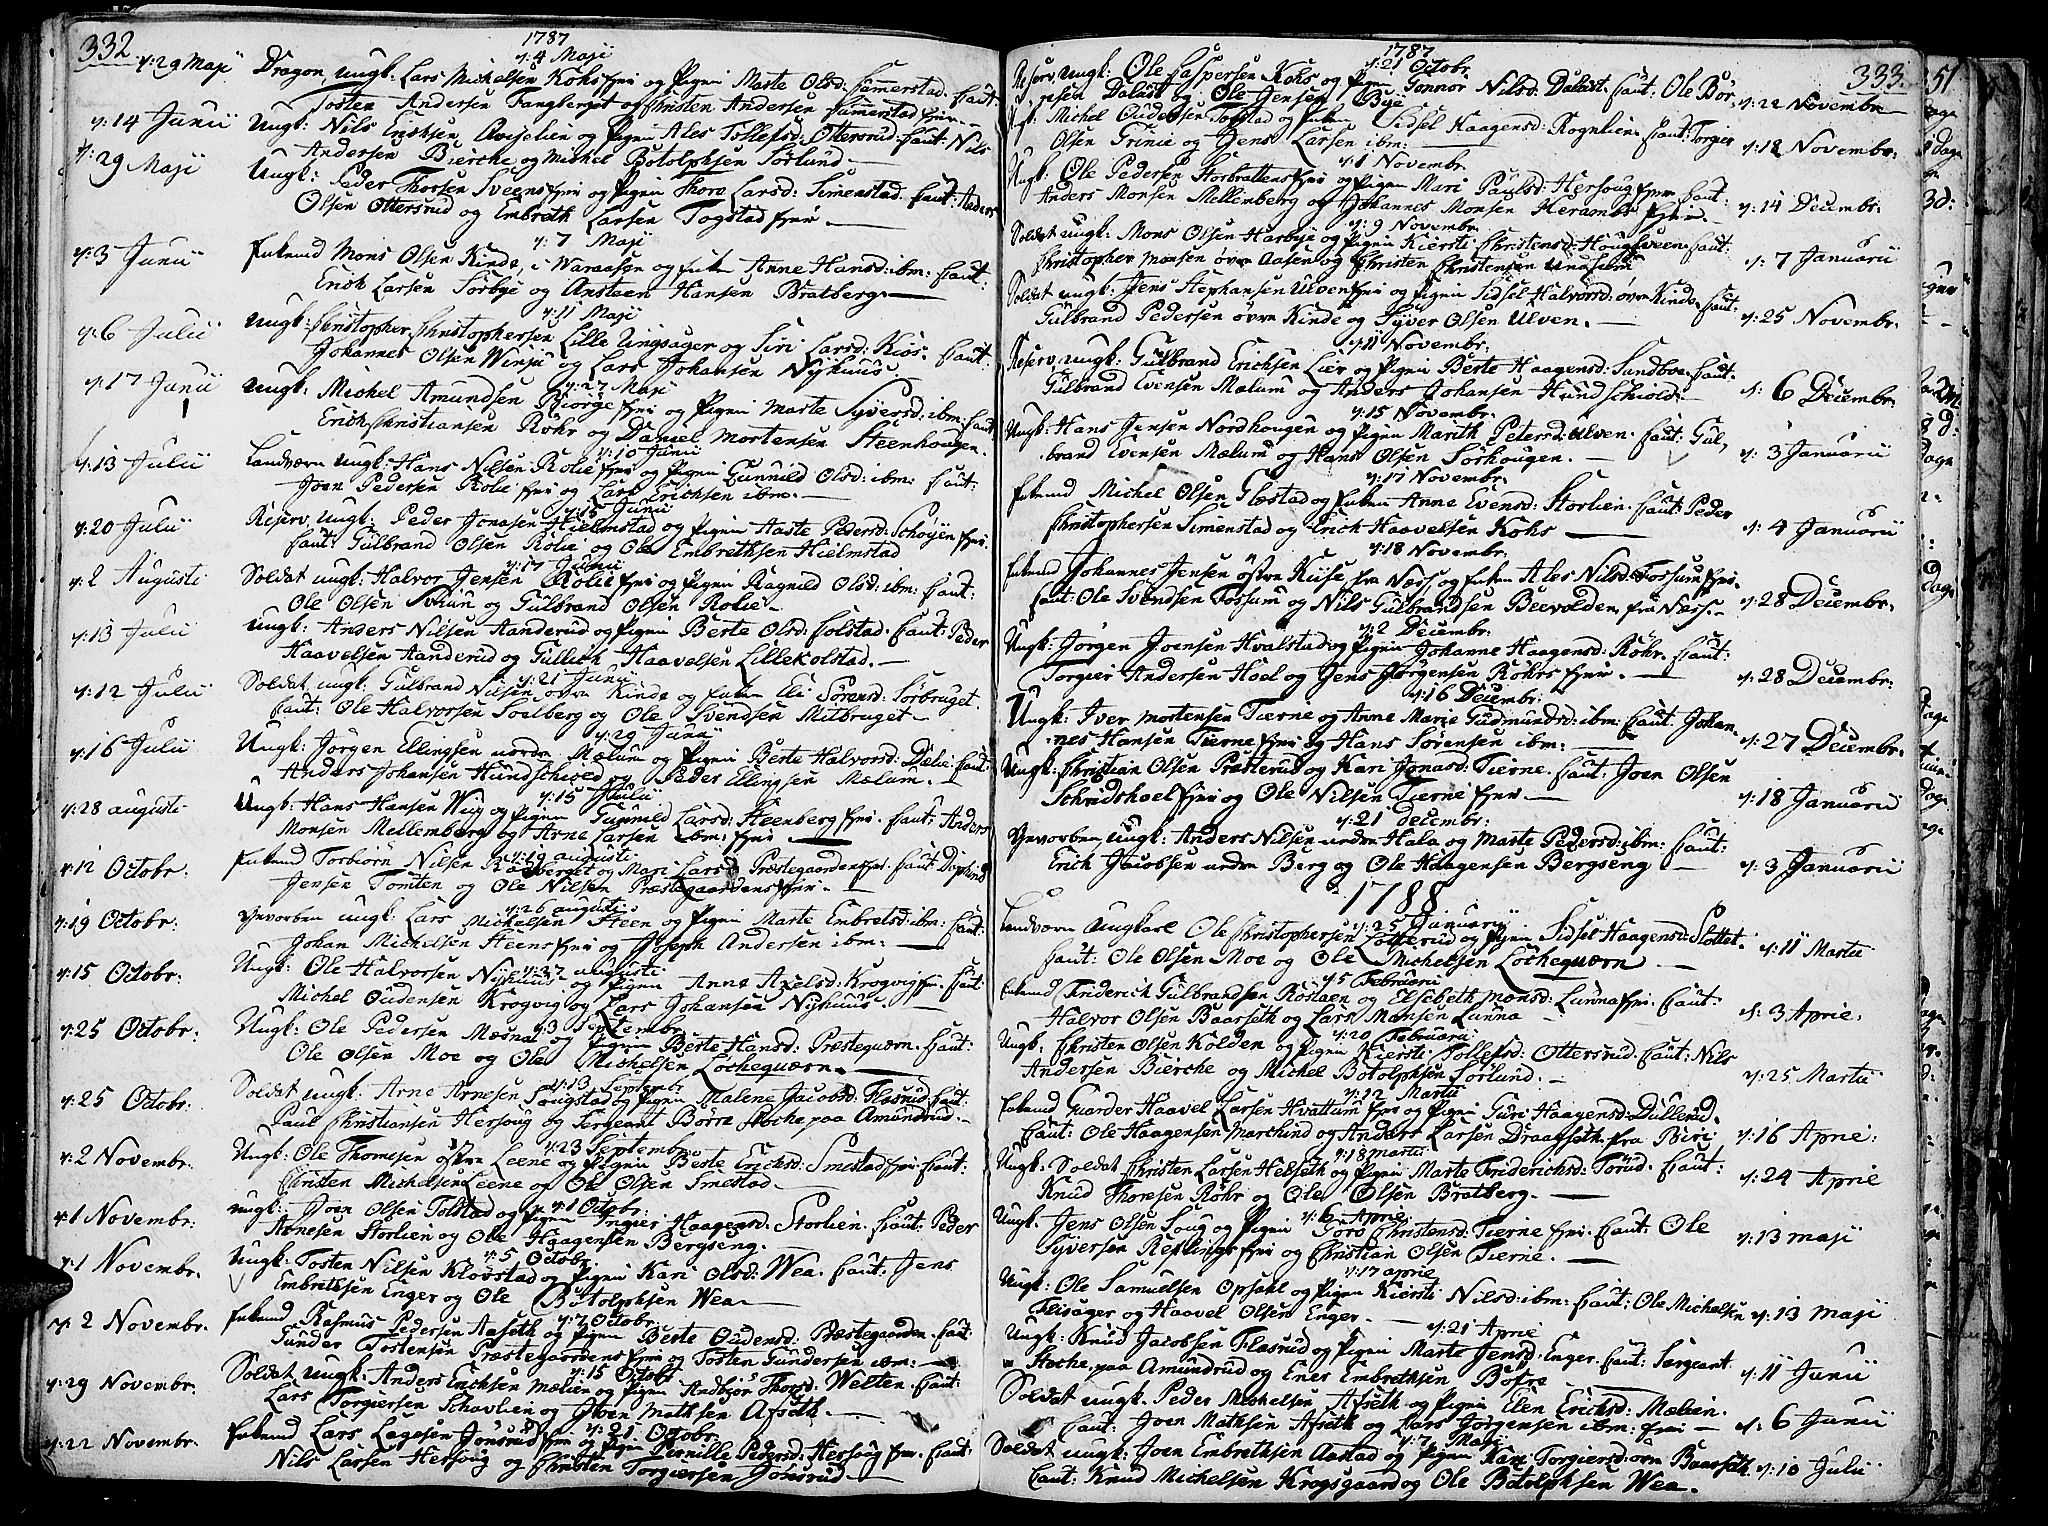 332
1787
d: 4 Maji
d: 29 Maji Dragon, ungk: Lars Michelsen Kohs eje og Pigen Marte Olsd: Sæmerstad. Caut:
Tosten Andersen Fangberget og Christen Andersen Sæmerstad ejer.
d: 14 Junii Ungk: Nils Erichsen Avjelien og Pigen Ales Tollefsd: Ottersrud. Caut: Nils
Andersen Bierche og Michel Botolphsen Sørlund.
d: 29 Maji Ungk: Peder Thorsen Sveens eje og Pigen Thore Larsd: Simenstad. Caut: Anders
Olsen Ottersrud og Embreth Larsen Togstad ejer
d: 7 Maji
d: 3 Junii Enkemd Mons Olsen Kinde, i Waraasen og Enken Anne Hansd: ibm: Caut:
Erich Larsen Torbye og Ansteen Hansen Bratberg.
d: 11 Maji
d: 6 Julii Ungk: Christopher Christophersen Lille Ringsager og Siri Larsd: Kios. Caut:
Johannes Olsen Wenju og Lars Johansen Nyhuus.
d: 27 Maji
d: 17 Junii Ungk: Michel Amundsen Biørge eje og Pigen Marte Syversd: ibm: Caut:
Erich Christiansen Røhr og Daniel Mortensen Steenhougen.
d: 10 Junii
d: 13 Julii Landværn ungk: Hans Nilsen Rolie eje og Pigen Gunnild Olsd: ibm: Caut:
Joen Pedersen Rolie eje og Lars Erichsen ibm.
d: 15 Junii
d: 20 Julii Reserv, ungk: Peder Jonasen Hielmstad og Pigen Aaste Pedersd: Schøyen eje.
Caut: Gulbrand Olsen Rolie og Ole Embrethsen Hielmstad
d: 17 Junii
d: 2 Augusti Soldat ungk: Halvor Jensen Rolie eje og Pigen Ragnild Olsd: ibm: Caut:
Ole Olsen Svuun og Gulbrand Olsen Rolie
d: 13 Julii Ungk: Anders Nilsen Aanderud og Pigen Berte Olsd: Colstad. Caut: Peder
Haavelsen Aanderud og Gullich Haavelsen Lillekolstad.
d: 21 Junii
d: 12 Julii Soldat ungk: Gulbrand Nilsen øvre Kinde og Enken Eli Sørensd: Sørbruget.
Caut: Ole Halvorsen Soelberg og Ole Svendsen Mitbruget
d: 29 Junii
d: 16 Julii Ungk: Jørgen Ellingsen nordre Mælum og Pigen Berte Halvorsd: Dælie. Caut:
Anders Johansen Hundschioed og Peder Ellingsen Mælum.
d: 15 Julii
d: 28 augusti Ungk: Hans Hansen Wiig og Pigen Gunnild Larsd: Steenberg eje. Caut: Anders
Monsen Mellemberg og Arne Larsen ibm: eje
d: 19 augusti
d: 12 Octobr: Enkemd Torbiørn Nilsen Raaberget og Mari Larsd Præstegaardens eje Caut
Jensen Tomten og Ole Nilsen Præstegaardens eje.
d: 26 augusti
d: 19 Octobr: Hvervorben ungk: Lars Michelsen Steen og Pigen Marte Embretsd: ibm: Caut:
Johan Michelsen Steens eje og Joseph Andersen ibm:
d: 27 augusti
d: 15 Octobr: Ungk: Ole Halvorsen Nyhuus og Pigen Anne Axelsd: Krogvig eje. Caut:
Michel Oudensen Krogvig og Lars Johansen Nyhuus
d: 3 Septembr:
d: 25 Octobr: Ungk: Ole Pedersen Mæsnæ og Pigen Berte Hansd: Præsteqværn. Caut:
Ole Olsen Moe og Ole Michelsen Løcheqværn.
d: 13 Septembr
d: 25 Octobr: Soldat ungk: Arne Arnesen Fougstad og Pigen Malene Jacobsd: Flusrud. Caut:
Paul Christiansen Hersoug og Sergeant Børre Stoche paa Amundrud.
d: 23 Septembr
d: 2 Novembr: Ungk: Ole Thomesen østre Leene og Pigen Berte Ericksd: Smestad eje. Caut:
Christen Michelsen Leene og Ole Olsen Smestad.
d: 1 Octobr:
d: 1 Novembr: Ungk: Joen Olsen Tolstad og Pigen Ingier Haagensd: Storlien. Caut: Peder
Arnesen Storlien og Ole Haagensen Bergseng.
d: 5 Octobr
d: 1 Novembr. Ungk: Tosten Nilsen Kløvstad og Pigen Kari Olsd: Wea. Caut: Jens
Embrethsen Enger og Ole Botolphsen Wea.
d: 7 Octobr
d: 2 Novembr. Enkemd Rasmus Pedersen Aaseth og Pigen Berte Oudensd: Præstegaarden. Caut:
Gunder Tostensen Præstegaardens eje og Tosten Gundersen ibm:
d: 15 Octobr
d: 29 Novembr. Soldat Ungk: Anders Erichsen Mælien og Pigen Andbjør Thorsd: Welten. Caut:
Lars Torgiersen Schavlien og Joen Mathsen Afseth.
d: 21 Octobr:
d: 22 Novembr. Enkemd Lars Lagesen Jønsrud eje og Pigen Pernille Pedersd: Hersoug eje. Caut:
Nils Larsen Hersoug og Christen Torgiersen Jønsrud
1787
d: 21 Octobr
333.
Reserv, ungk: Ole Caspersen Kohs og Pigen Gonnor Nilsd: Dalbst. Caut: Ole Bør-
gesen Dalbst og Ole Jensen Bye d: 22 Novembr.
Ungk. Michel Oudensen Togstad og Enken Sidsel Haagensd: Rognlien. Caut: Torgier
Olsen Trinie og Jens Larsen ibm: d: 12 Novembr.
d: 1 Novembr.
Ungk: Ole Pedersen Storbrattens eje og Pigen Mari Paulsd: Hersoug eje Caut:
Anders Monsen Mellenberg og Johannes Monsen Herambs ejer. d: 14 Decembr:
d: 9 Novembr.
Soldat ungk: Mons Olsen Harbye og Pigen Kiersti Christensd: Hougsveen. Caut:
Christopher Monsen øvre Aasen og Christen Christensen d: 7 Januarii
Soldat ungk: Jens Stephansen Ulven eje og Pigen Sidsel Halvorsd: øvre Kinde. Caut:
Gulbrand Pedersen øvre Kinde og Syver Olsen Ulven. d: 25 Novembr.
d: 11 Novembr.
Reserv, ungk: Gulbrand Erichsen Lier og Pigen Berte Haagensd: Sandboe. Caut.
Gulbrand Evensen Mælum og Anders Johansen Hundschiold. d: 6 Decembr.
d: 15 Novembr.
Ungk: Hans Jensen Nordhougen og Pigen Marith Petersd: Ulven. Caut: Gul,
brand Evensen Mælum og Hans Olsen Sørhougen. d: 3 Januarii
d: 17 Novembr.
Enkemd Michel Olsen Glæstad og Enken Anne Evensd: Storlien. Caut: Peder
Christophersen Simenstad og Erich Haavelsen Kohs d: 4 Januarii
d: 18 Novembr.
Enkemd Johannes Jensen østre Kiise, fra Næss, og Enken Ales Nilsd: Fossum eje.
Caut: Ole Svendsen Fossum og Nils Gulbrandsen Beevolden, fra Næss. d: 28 Decembr.
d: 2 Decembr.
Ungk: Jørgen Joensen Hvalstad og Pigen Johanne Haagensd: Røhr. Caut:
Torgier Andersen Hoel og Jens Jørgensen Røhrs ejer. d: 28 Decembr:
d: 16 Decembr.
Ungk: Iver Mortensen Tierne og Anne Marie Gudmundsd: ibm: Caut. Johan-
nes Hansen Tierne eje og Hans Sørensen ibm: d: 27 Decembr.
Ungk: Christian Olsen Præsterud og Kari Jonasd: Tierne. Caut: Joen Olsen
Schredshoel eje og Ole Nilsen Tierne ejer d: 18 Januarii
d: 21 decembr:
Hvervorben, ungk: Anders Nilsen nedre Hala og Marte Pedersd: ibm: Caut:
Erich Jacobsen nedre Berg og Ole Haagensen Bergseng d: 3 Januarii
1788
d: 25 Januarii
Landværn Ungkarl Ole Christophersen Lotterud og Pigen Sidsel Haagensd: Slottet.
Caut: Ole Olsen Moe og Ole Michelsen Løcheqværn d: 11 Martii
d: 5 Februarii
Enkemd Friderich Gulbrandsen Røslaen og Elsebeth Monsd: Lunna eje. Caut:
Halvor Olsen Baarseth og Lars Monsen Lunna d: 3 Aprie:
d: 20 Februarii
Ungk. Christen Olsen Kolden og Pigen Kiersti Tollefsd: Ottersrud. Caut: Nils
Andersen Bierche og Michel Botolphsen Sørlund. d: 25 Martii
d: 12 Martii
Enkemd Guarder Haavel Larsen Hvattum eje og Pigen Guri Haagensd: Dullerud.
Caut: Ole Haagensen Marchind og Anders Larsen Draagseth fra Biri d: 16 Aprie:
d: 18 Martii
Ungk: Soldat Christen Larsen Helseth og Pigen Marte Friderichsd: Torud. Caut:
Knud Thoresen Røhr og Ole Olsen Bratberg. d: 24 Aprie
d: 6 Aprie.
Ungk. Jens Olsen Soug og Pigen Goro Christensd: Tierne eje. Caut: Ole
Syversen Reflings eje og Christian Olsen Tierne. d: 13 maji
d: 17 aprie
Ungk: Ole Samuelsen Opsahl og Pigen Kiersti Nilsd: ibm: Caut: Ole Michelsen
Flisager og Haavel Olsen Enger. d: 13 maji
d: 21 Aprie
Ungk: Knud Jacobsen Flæsrud og Pigen Marte Jensd: Enger. Caut: Sergeant
Stoche paa Amundrud og Ener Embrethsen Bøfre d: 11 Junii
Soldat ungk. Peder Michelsen Afseth og Pigen Elen Ericksd: Mælien.
Caut: Joen Mathsen Afseth og Lars Jørgensen ibm: eje d: 6 Junii
d: 7 Maji
Soldat ungk: Joen Embrethsen Aastad og Pigen Kari Torgiersd: øvre Baarseth
Caut: Knud Michelsen Krogsgaard og Ole Botolphsen Wea. d: 10 Julii
51